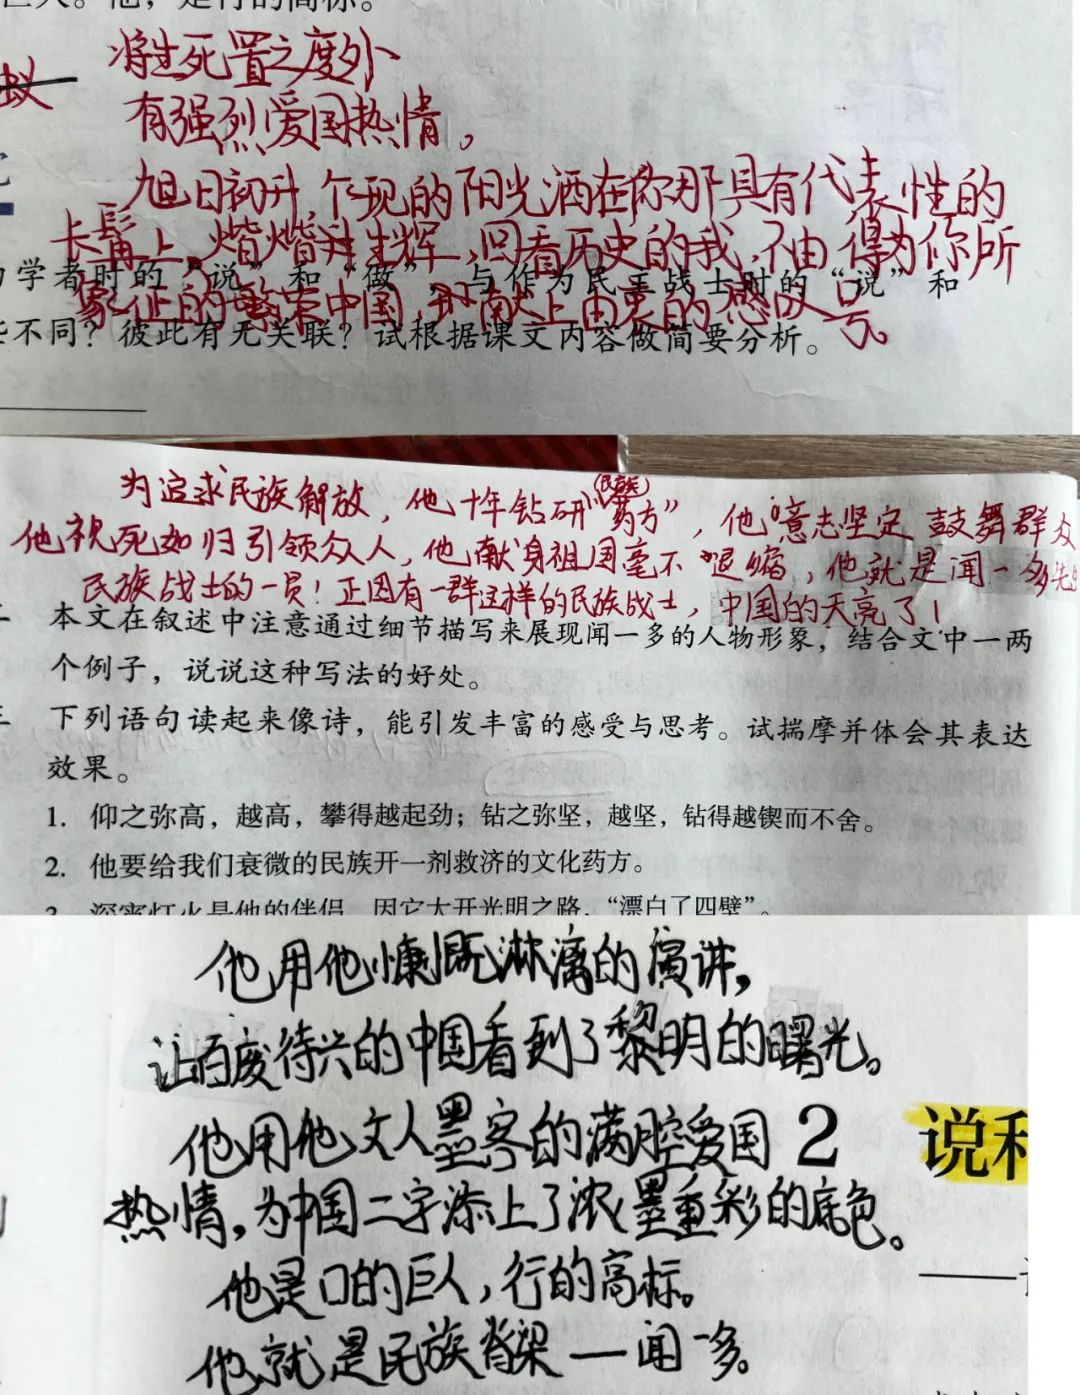 巨人。他，是行的高标。
将生死置之度外
蚁
有强烈爱国热情。
旭日初升 乍现的阳光洒在你那具有代表性的
长髯上，熠熠升生辉，回看历史的我，不由得为你所
学者时的“说”和“做”，与作为民主战士时的“说”和
象征的繁荣中国，献上由衷的感叹号。
些不同？彼此有无关联？试根据课文内容做简要分析。
为追求民族解放，他十年钻研“(民族)药方”，他“意志坚定 鼓舞群众
他视死如归引领众人，他献身祖国毫不退缩，他就是闻一多先生
民族战士的一员！正因有一群这样的民族战士，中国的天亮了！
二 本文在叙述中注意通过细节描写来展现闻一多的人物形象，结合文中一两
个例子，说说这种写法的好处。
三 下列语句读起来像诗，能引发丰富的感受与思考。试揣摩并体会其表达
效果。
1. 仰之弥高，越高，攀得越起劲；钻之弥坚，越坚，钻得越锲而不舍。
2. 他要给我们衰微的民族开一剂救济的文化药方。
3 深宵灯火是他的伴侣，因它大开光明之路，“漂白了四壁”。
他用他慷慨淋漓的演讲，
让百废待兴的中国看到了黎明的曙光。
他用他文人墨客的满腔爱国 2 说和
热情，为中国二字添上了浓墨重彩的底色。
他是口的巨人，行的高标。
他就是民族脊梁—闻一多。